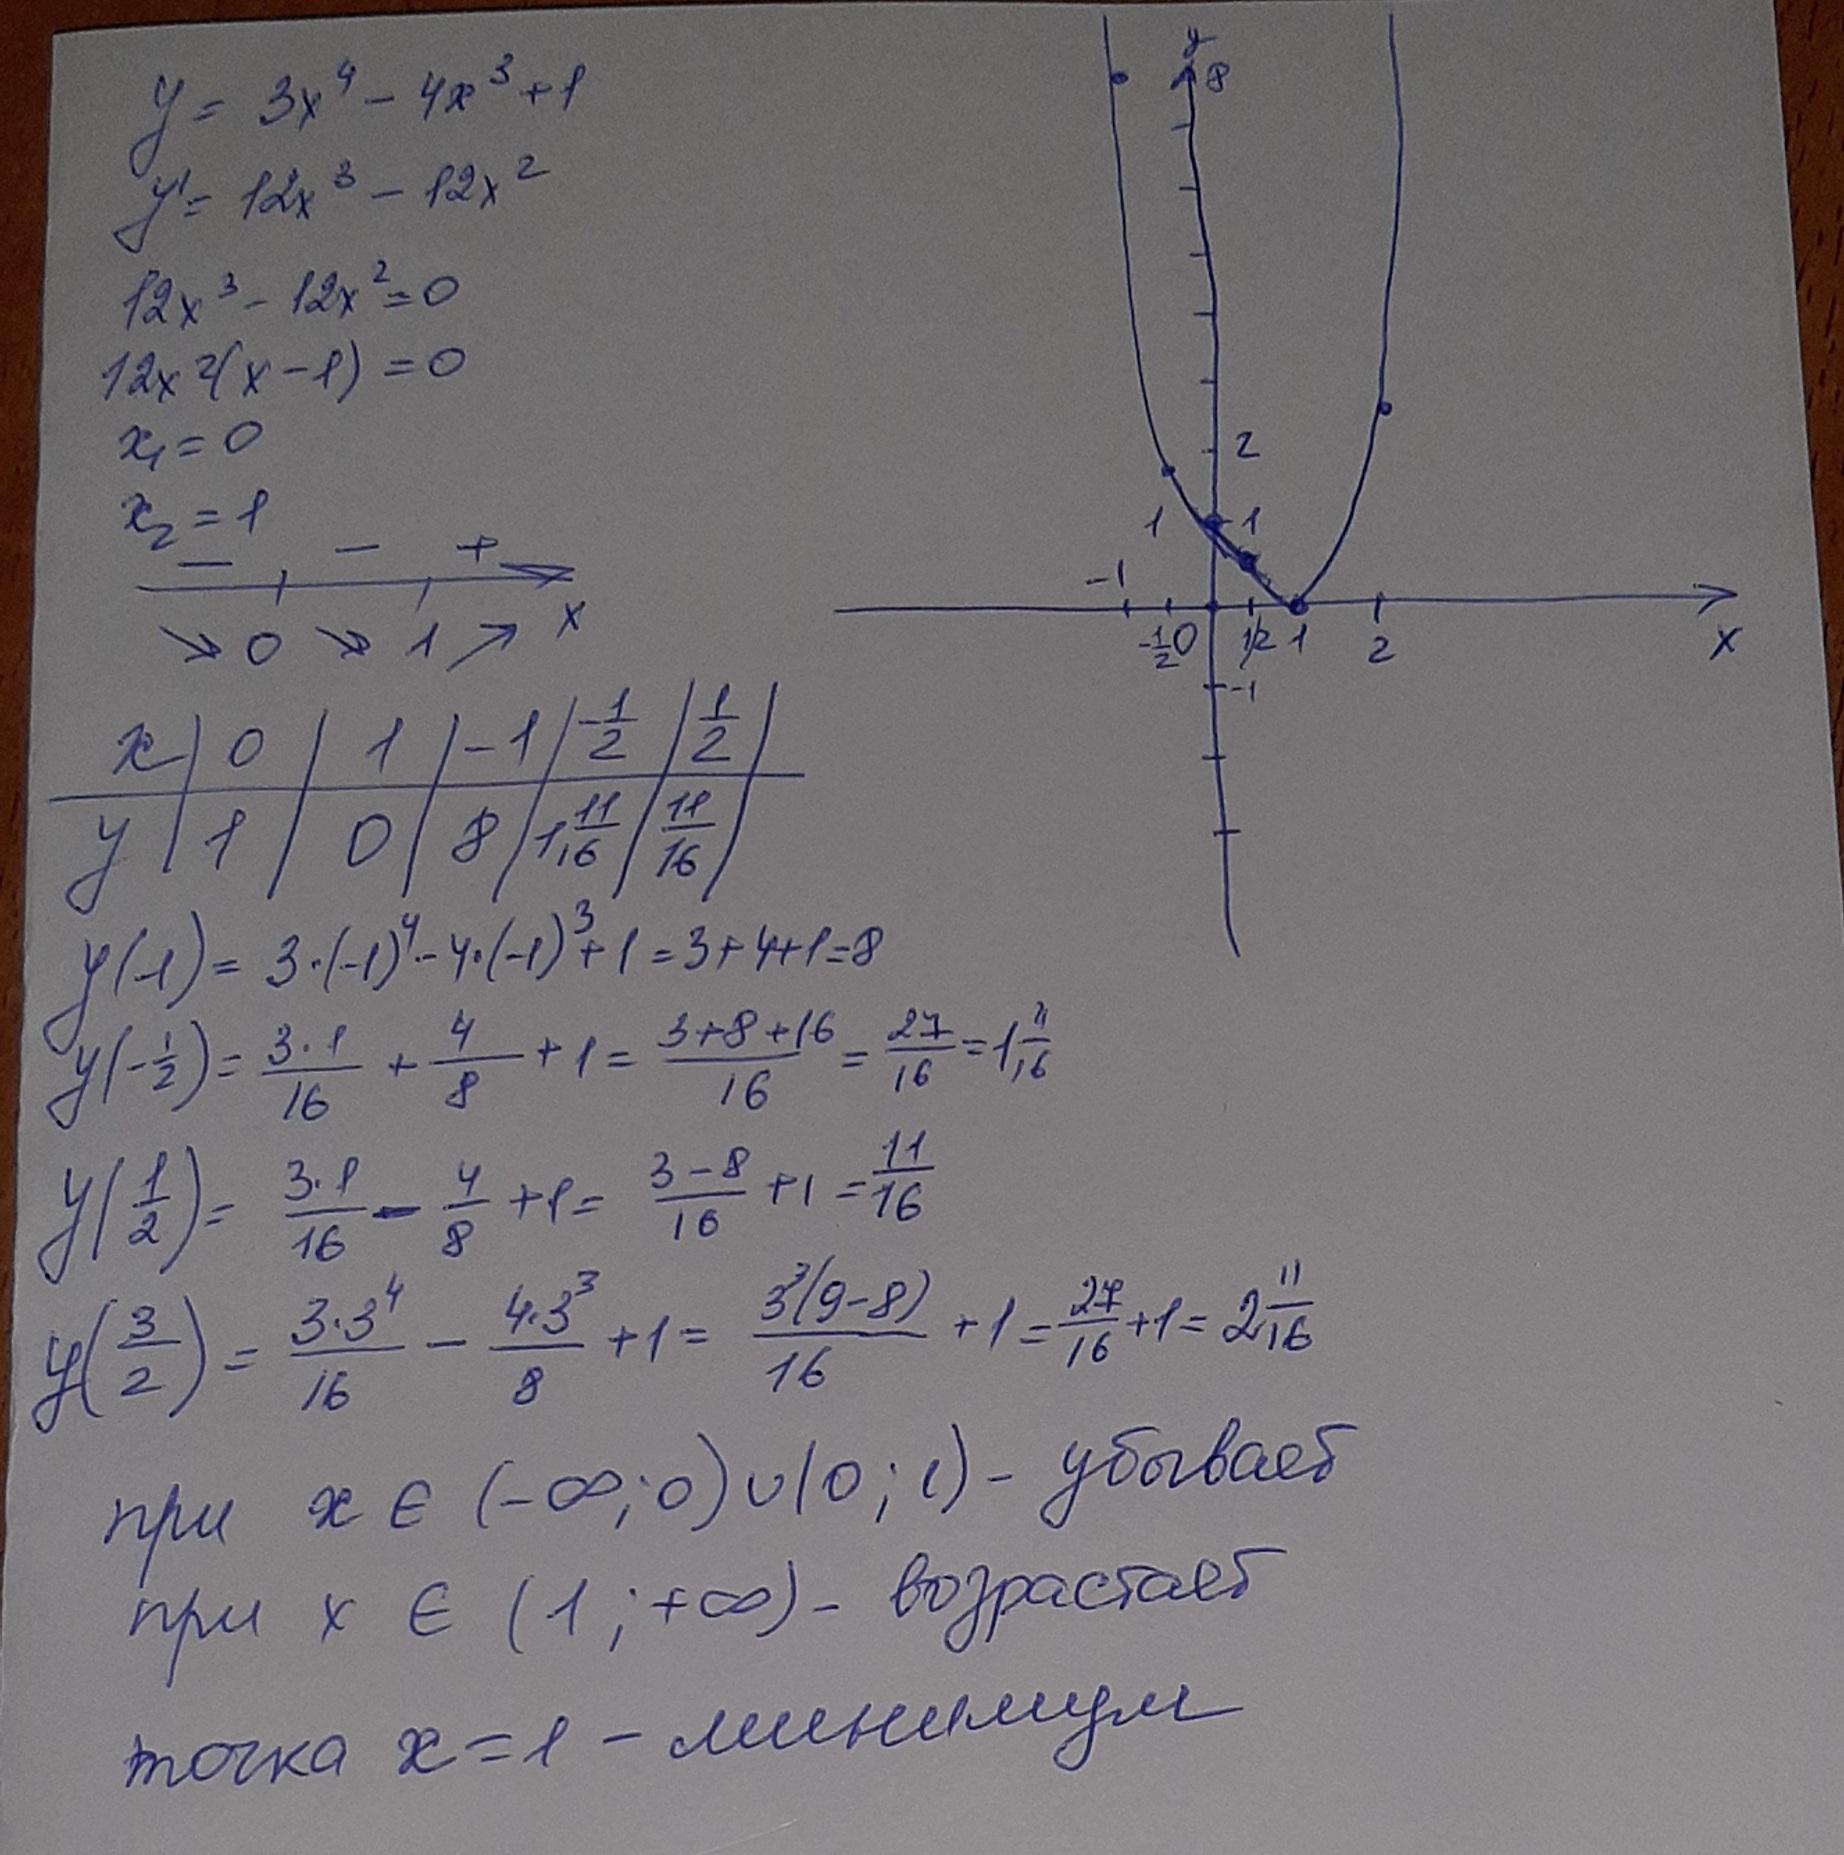 y = 3x⁴ - 4x³ + 1
y' = 12x³ - 12x²
12x³ - 12x² = 0
12x²(x - 1) = 0
x₁ = 0
x₂ = 1
- - +
0 1 x
x | 0 | 1 | -1 | -1/2 | 1/2 |
y | 1 | 0 | 8 | 1 11/16 | 11/16 |
y(-1) = 3·(-1)⁴ - 4·(-1)³ + 1 = 3+4+1=8
y(-1/2) = 3·1/16 + 4/8 + 1 = (3+8+16)/16 = 27/16 = 1 11/16
y(1/2) = 3·1/16 - 4/8 + 1 = (3-8)/16 + 1 = 11/16
y(3/2) = 3·3⁴/16 - 4·3³/8 + 1 = 3³(9-8)/16 + 1 = 27/16 + 1 = 2 11/16
при x ∈ (-∞; 0) ∪ (0; 1) - убывает
при x ∈ (1; +∞) - возрастает
точка x = 1 - минимум
y
8
2
1 1
-1
-1/2 0 1/2 1 2 x
-1